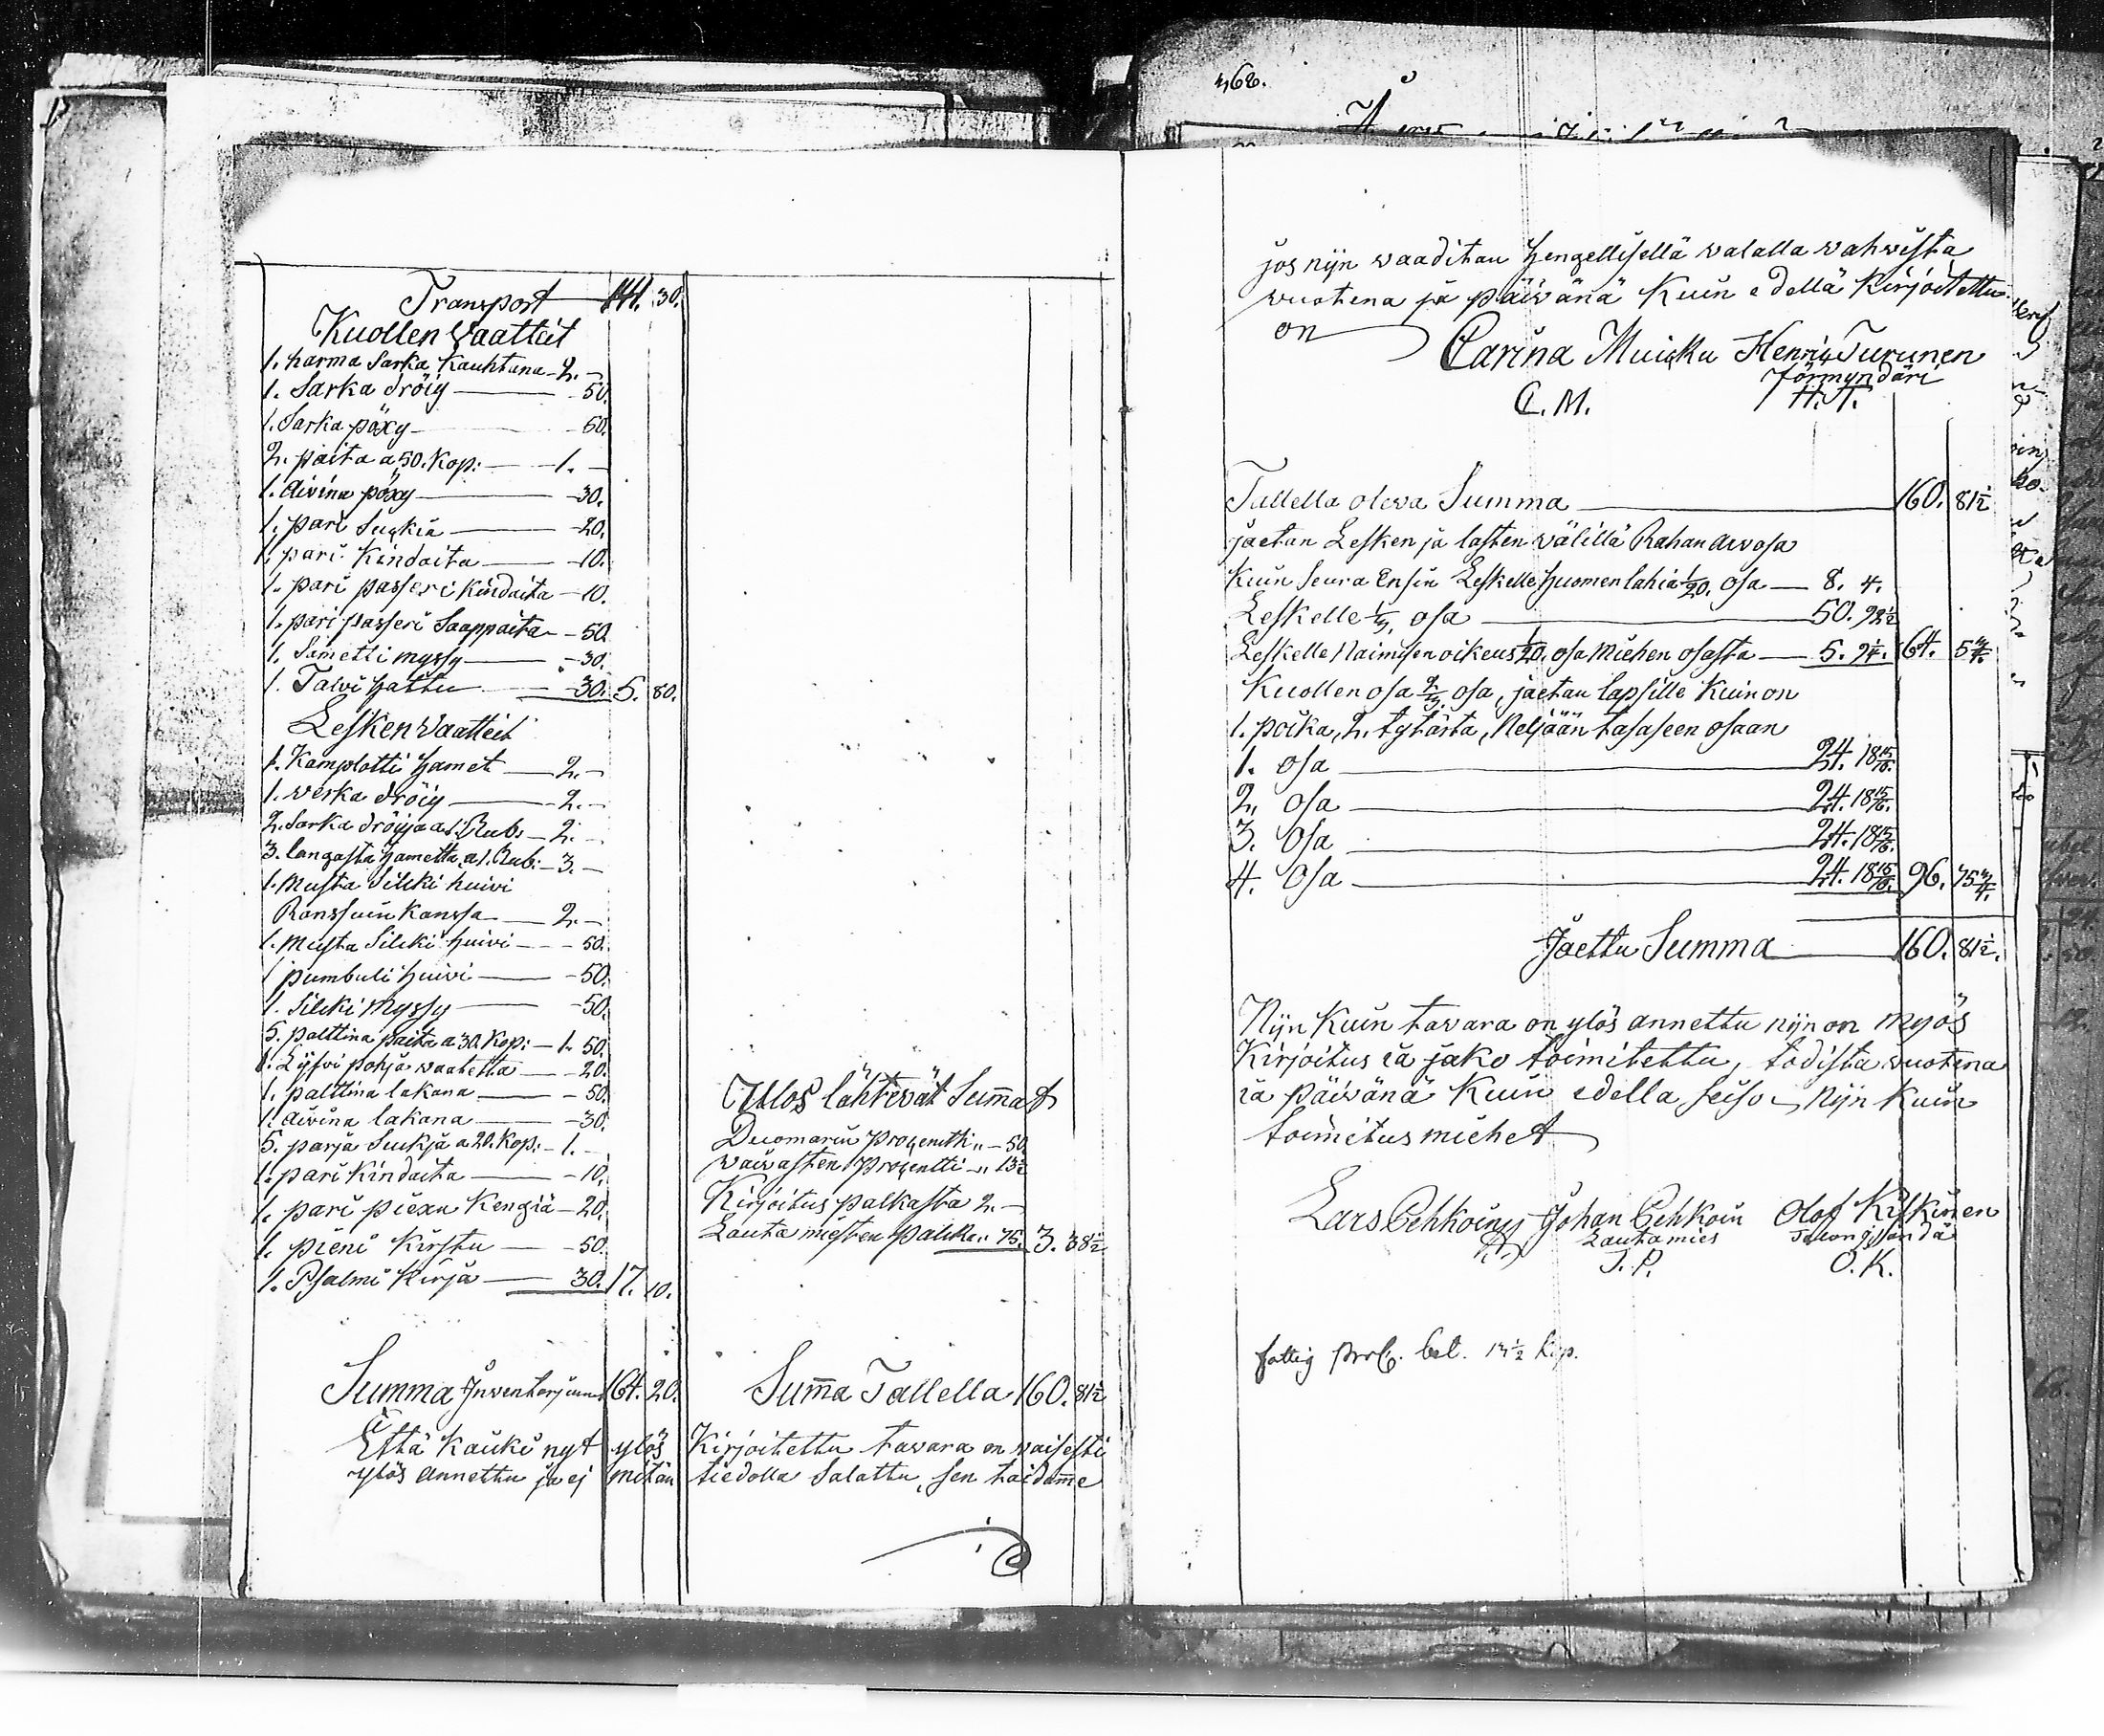 Transport 141. 30.
Kuollen Vaatteit
1. harma Sarka Kauhtuna - 2. -
1. Sarka dröig - 50.
1. Sarka pöxy - 50.
2. paita a 50. Kop: - 1. -
1. aivina pöxy - 30.
1. pari Suckia - 20.
1. pari Kindaita - 10.
1. pari passeri Kindaita - 10.
1. pari passeri Saappaita - 50.
1. Sametti myssy - 30.
1. Talvi hattu - 30. 5. 80.
Lesken Vaatteit
1. Kamplotti hamet - 2. -
1. verka dröig - 2. -
2. Sarka dröijya a 1. Rub: - 2. -
3. langasta hametta a 1. Rub: - 3. -
1. Musta Silcki huivi
Ranssuin kanssa - 2. -
1. Musta Silcki huivi - 50.
1 pumbuli huivi - 50.
1. Silcki Myssy - 50.
5. palttina paita a 30. Kop: - 1. 50.
1. Lijsvi pohja vaatetta - 20.
1. palttina lakana - 50.
1. aivina lakana - 30.
5. parja Suckja a 20. Kop: - 1. -
1. pari Kindaita - 10.
1. pari piexu Kengiä - 20.
1. pieni Kirstu - 50.
1. Psalmi Kirja - 30. 17. 10.
Summa Inventarjum 164. 20.
Ulos lähtevät Sum̄at
Duomarin Procentti „ - 50.
vaivasten Procentti - „ 13½
Kirjoitus palkasta 2. -
Lauta miesten palck. „ 75. 3. 38½
Sum̄a Tallella 160. 81½
Että kaicki nyt ylös Kirjoitettu tavara on
ylös annettu ja ej mitän tiedolla Salattu, sen taidam̄e
368.
jos nijn vaaditan hengellisellä valalla vahvista
vuotena ja päivänä Kuin edellä Kirjoitettu
on
Carina Muicku Henric Turunen
förmyndäri
C. M. H. T.
Tallella oleva Summa 160. 81½
jaetan Lesken ja lasten välillä Rahan arvosa
Kuin seura Ensin Leskelle huomen lahia 1/20. osa - 8. 4.
Leskelle 1/3. osa 50. 92½
Leskelle Naimisen oikeus 1/20. osa Miehen osasta - 5. 9¼. 64. 5¾.
Kuollen osa 2/3. osa, jaetan lapsille Kuin on
1. poika, 2. tytärtä, Neljään tasaseen osaan
1. osa 24. 18 15/16.
2. osa 24. 18 15/16.
3. osa 24. 18 15/16.
4. osa 24. 18 15/16. 96. 75¾.
Jaettu Summa 160. 81½.
Nijn Kuin tavara on ylös annettu nijn on myös
Kirjoitus ia jako toimitettu, todista vuotena
ia päivänä Kuin edella seiso, Nijn Kuin
toimitus miehet
Lars Johan Olof Kilkinen
Lautamies
J. P. O. K.
fattig Proc. bet. 13½ kop.